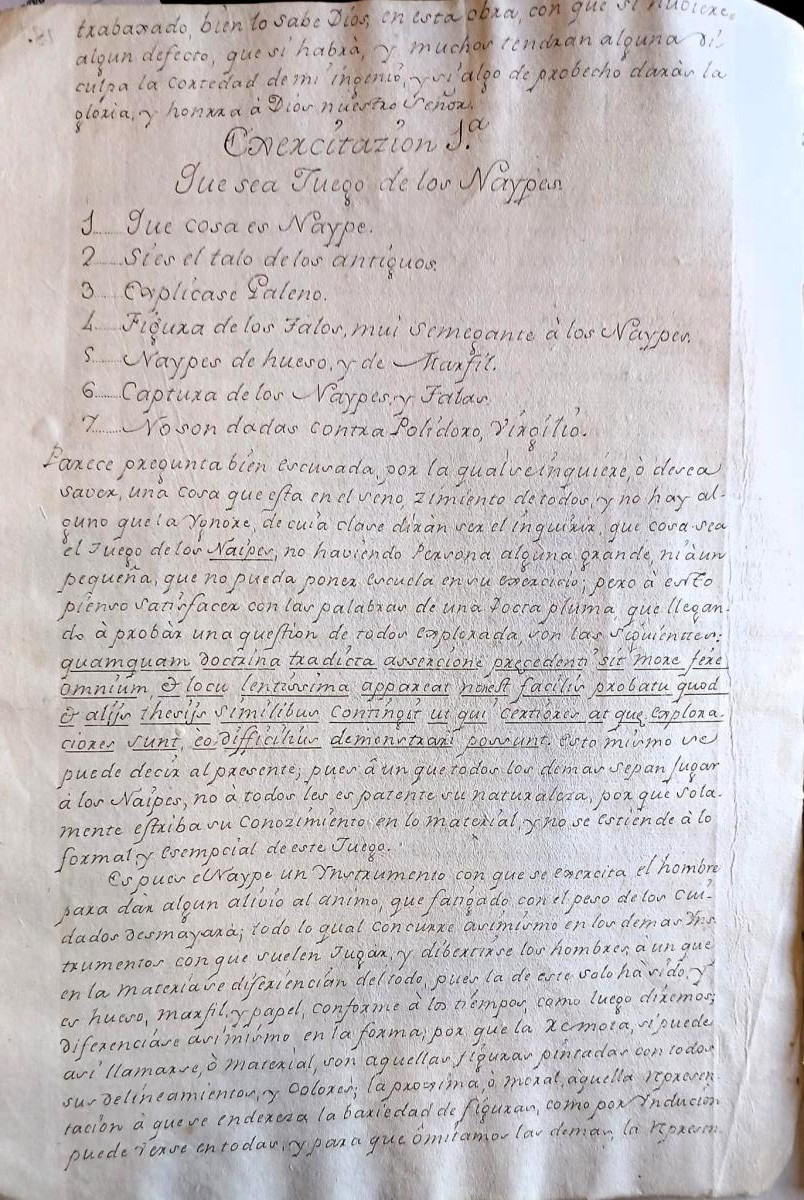 trabaxado, bien lo sabe Dios, en esta obra, con que si hubiere
algun defecto, que si habrà, y muchos tendran alguna di-
culpa la cortedad de mi ingenio, y si algo de probecho daràs la
gloria, y honrra à Dios nuestro Señor.
Exexcitazion 1.ª
Que sea Juego de los Naypes
1...... Que cosa es Naype.
2...... Si es el talo de los antiguos.
3...... Explicase Galeno.
4...... Figura de los Talos, mui semegante à los Naypes.
5...... Naypes de hueso, y de Marfil.
6...... Captura de los Naypes, y Talas
7...... No son dadas contra Polidoro, Virgilio.
Parece pregunta bien escusada, por la qual se inquiere, ò desea
saver, una cosa que esta en el seno, zimiento de todos, y no hay al-
guno que la Ygnore, de cuia clase diran ser el inquirir, que cosa sea
el Juego de los Naipes, no haviendo Persona alguna grande, ni àun
pequeña, que no pueda poner escuela en su exercicio; pero à esto
pienso satisfacer con las palabras de una Docta pluma que llegan-
do à probàr una question de todos explorada, son las siguientes:
quamquam doctrina tradicta assercione precedenti sit more fere
omnium, et locu lentissima appareat non est facilis probatu quod
et alijs thesijs similibus contingit ut qui certiores at que explora-
ciores sunt, eo difficilius demonstrari possunt. Esto mismo se
puede decir al presente; pues â un que todos los demas sepan jugar
à los Naipes, no à todos les es patente su naturaleza, por que sola-
mente estriba su Conozimiento en lo material, y no se estiende à lo
formal, y esempcial de este Juego.
Es pues el Naype un Ynstrumento con que se exercita el hombre
para dàr algun alivio al animo, que fatigado con el peso de los Cui-
dados desmayarà; todo lo qual concurre asimismo en los demas Yns-
trumentos con que suelen Jugàr, y dibertirse los hombres, a un que
en la materia se diferiencian del todo, pues la de este solo hà sido, y
es hueso, marfil, y papel, conforme à los tiempos, como luego diremos;
diferenciàse asimismo en la forma, por que la Remota, si puede
asi llamarse, ò material, son aquellas figuras pintadas con todos
sus delineamientos, y Colores; la proxima, ò moral, àquella represen-
tacion à que se endereza la bariedad de figuras, como por Ynducion
puede verse en todas, y para que ômitamos las demas, la represen-